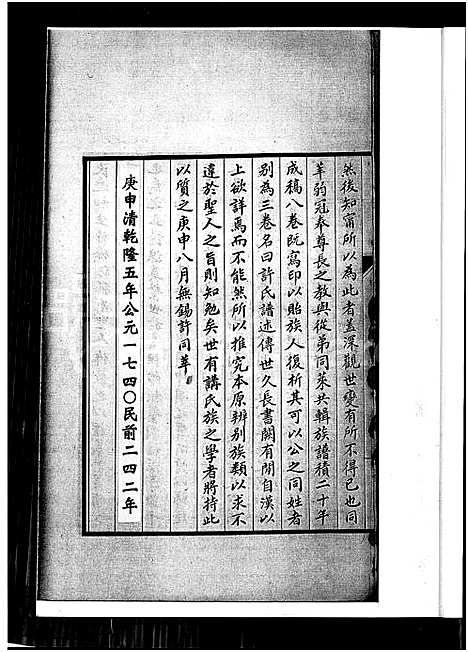 然後知甯所以為此者蓋深觀世變有所不得已也同
莘弱冠奉尊長之教與從弟同萊共輯族譜積二十年
成稿八卷既寫印以貽族人復析其可以公之同姓者
別為三卷名曰許氏譜述傳世久長書闕有間自漢以
上欲詳焉而不能然所以推究本原辨別族類以求不
違於聖人之旨則知勉矣世有講氏族之學者將持此
以質之庚申八月無錫許同莘
庚申清乾隆五年公元一七四〇民前二四二年